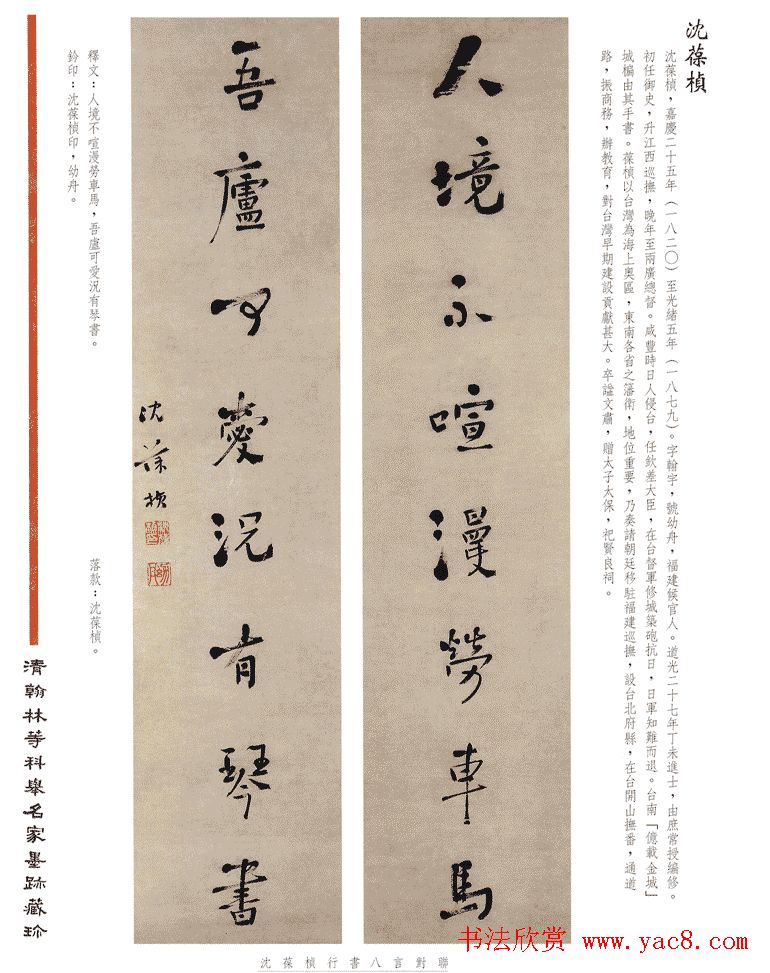 沈葆楨
沈葆楨，嘉慶二十五年（一八二〇）至光緒五年（一八七九）。字翰宇，號幼舟，福建侯官人。道光二十七年丁未進士，由庶常授編修。
初任御史，升江西巡撫，晚年至兩廣總督。咸豐時日人侵台，任欽差大臣，在台督軍修城築砲抗日，日軍知難而退。台南「億載金城」
城楄由其手書。葆楨以台灣為海上奧區，東南各省之藩衛，地位重要，乃奏請朝廷移駐福建巡撫，設台北府縣，在台開山撫番，通道
路，振商務，辦教育，對台灣早期建設貢獻甚大。卒謚文肅，贈太子太保，祀賢良祠。
人境不喧漫勞車馬
吾廬可愛況有琴書
沈葆楨
釋文：人境不喧漫勞車馬，吾廬可愛況有琴書。
落款：沈葆楨。
鈐印：沈葆楨印，幼舟。
清翰林等科舉名家墨跡藏珍
沈葆楨行書八言對聯
书法欣赏 www.yac8.com